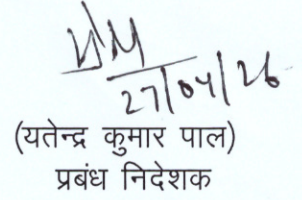 27/04/26
(यतेन्द्र कुमार पाल)
प्रबंध निदेशक